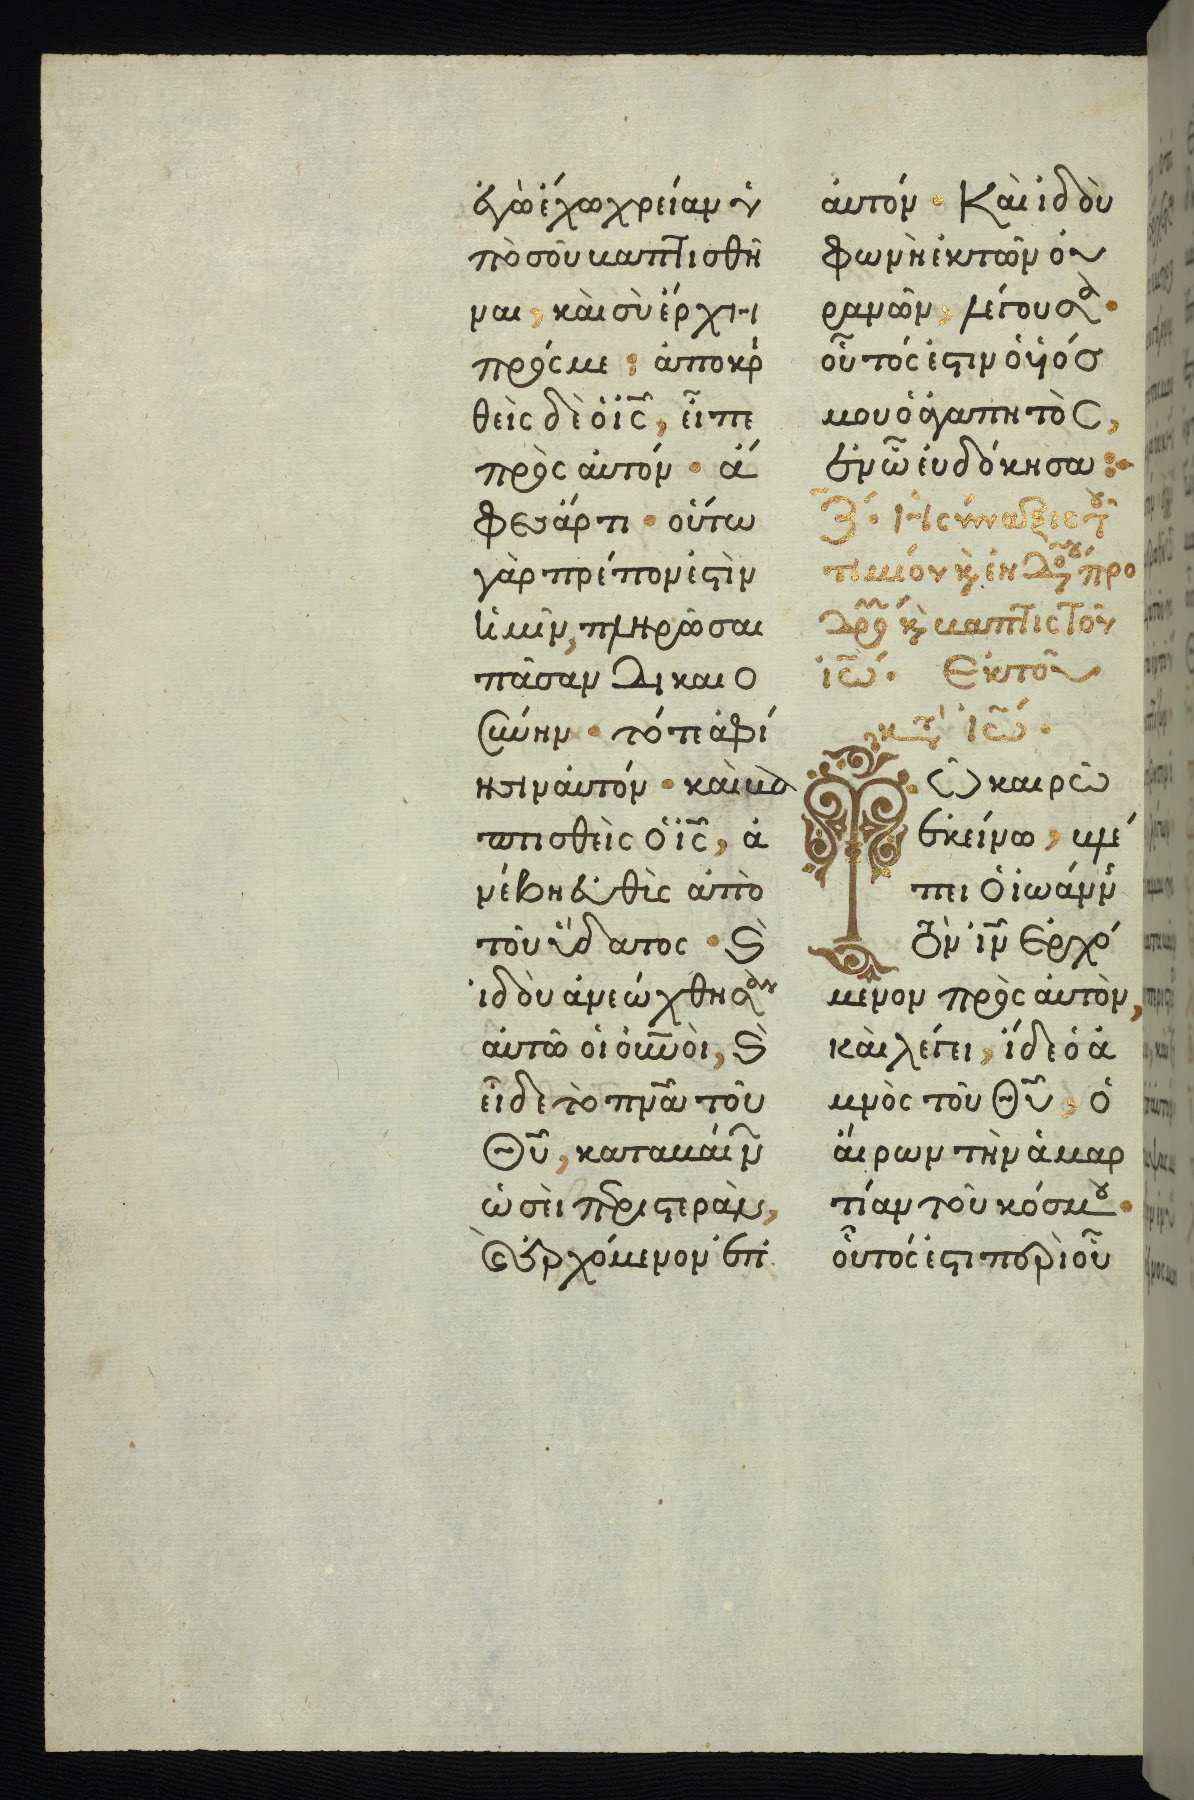 ἐγὼ ἔχω χρείαν ὑ
πὸ σοῦ βαπτισθῆ
ναι, καὶ σὺ ἔρχῃ
πρός με; ἀποκρι
θεὶς δὲ ὁ ἰς̃, εἶπε
πρὸς αὐτόν· ἄ
φες ἄρτι· οὕτω
γὰρ πρέπον ἐστὶν
ἡμῖν, πληρῶσαι
πᾶσαν δικαιο
σύνην· τότε ἀφί
ησιν αὐτόν· καὶ βα
πτισθεὶς ὁ ἰς̃, ἀ
νέβη εὐθὺς ἀπὸ
τοῦ ὕδατος· καὶ
ἰδοὺ ἀνεώχθησαν
αὐτῷ οἱ οὐνοὶ, καὶ
εἶδε τὸ πνᾶ τοῦ
Θῦ, καταβαῖνον
ὡσεὶ περιστερὰν,
καὶ ἐρχόμενον ἐπ'
αὐτόν· Καὶ ἰδοὺ
φωνὴ ἐκ τῶν οὐ
ρανῶν, λέγουσα·
οὗτός ἐστιν ὁ υἱός
μου ὁ ἀγαπητὸς,
ἐν ᾧ εὐδόκησα:
Ζ΄. Ἡ σύναξις τοῦ
τιμίου καὶ ἐνδόξου προ
δρόμου καὶ βαπτιστοῦ
ἰω̃. Ἐκ τοῦ
κατ ἰω̃.
Τῷ καιρῷ
ἐκείνῳ, βλέ
πει ὁ ἰωάννης
τὸν ἰν̃ ἐρχό
μενον πρὸς αὐτὸν,
καὶ λέγει, ἴδε ὁ ἀ
μνὸς τοῦ Θῦ, ὁ
αἴρων τὴν ἁμαρ
τίαν τοῦ κόσμου·
οὗτός ἐστι περὶ οὗ